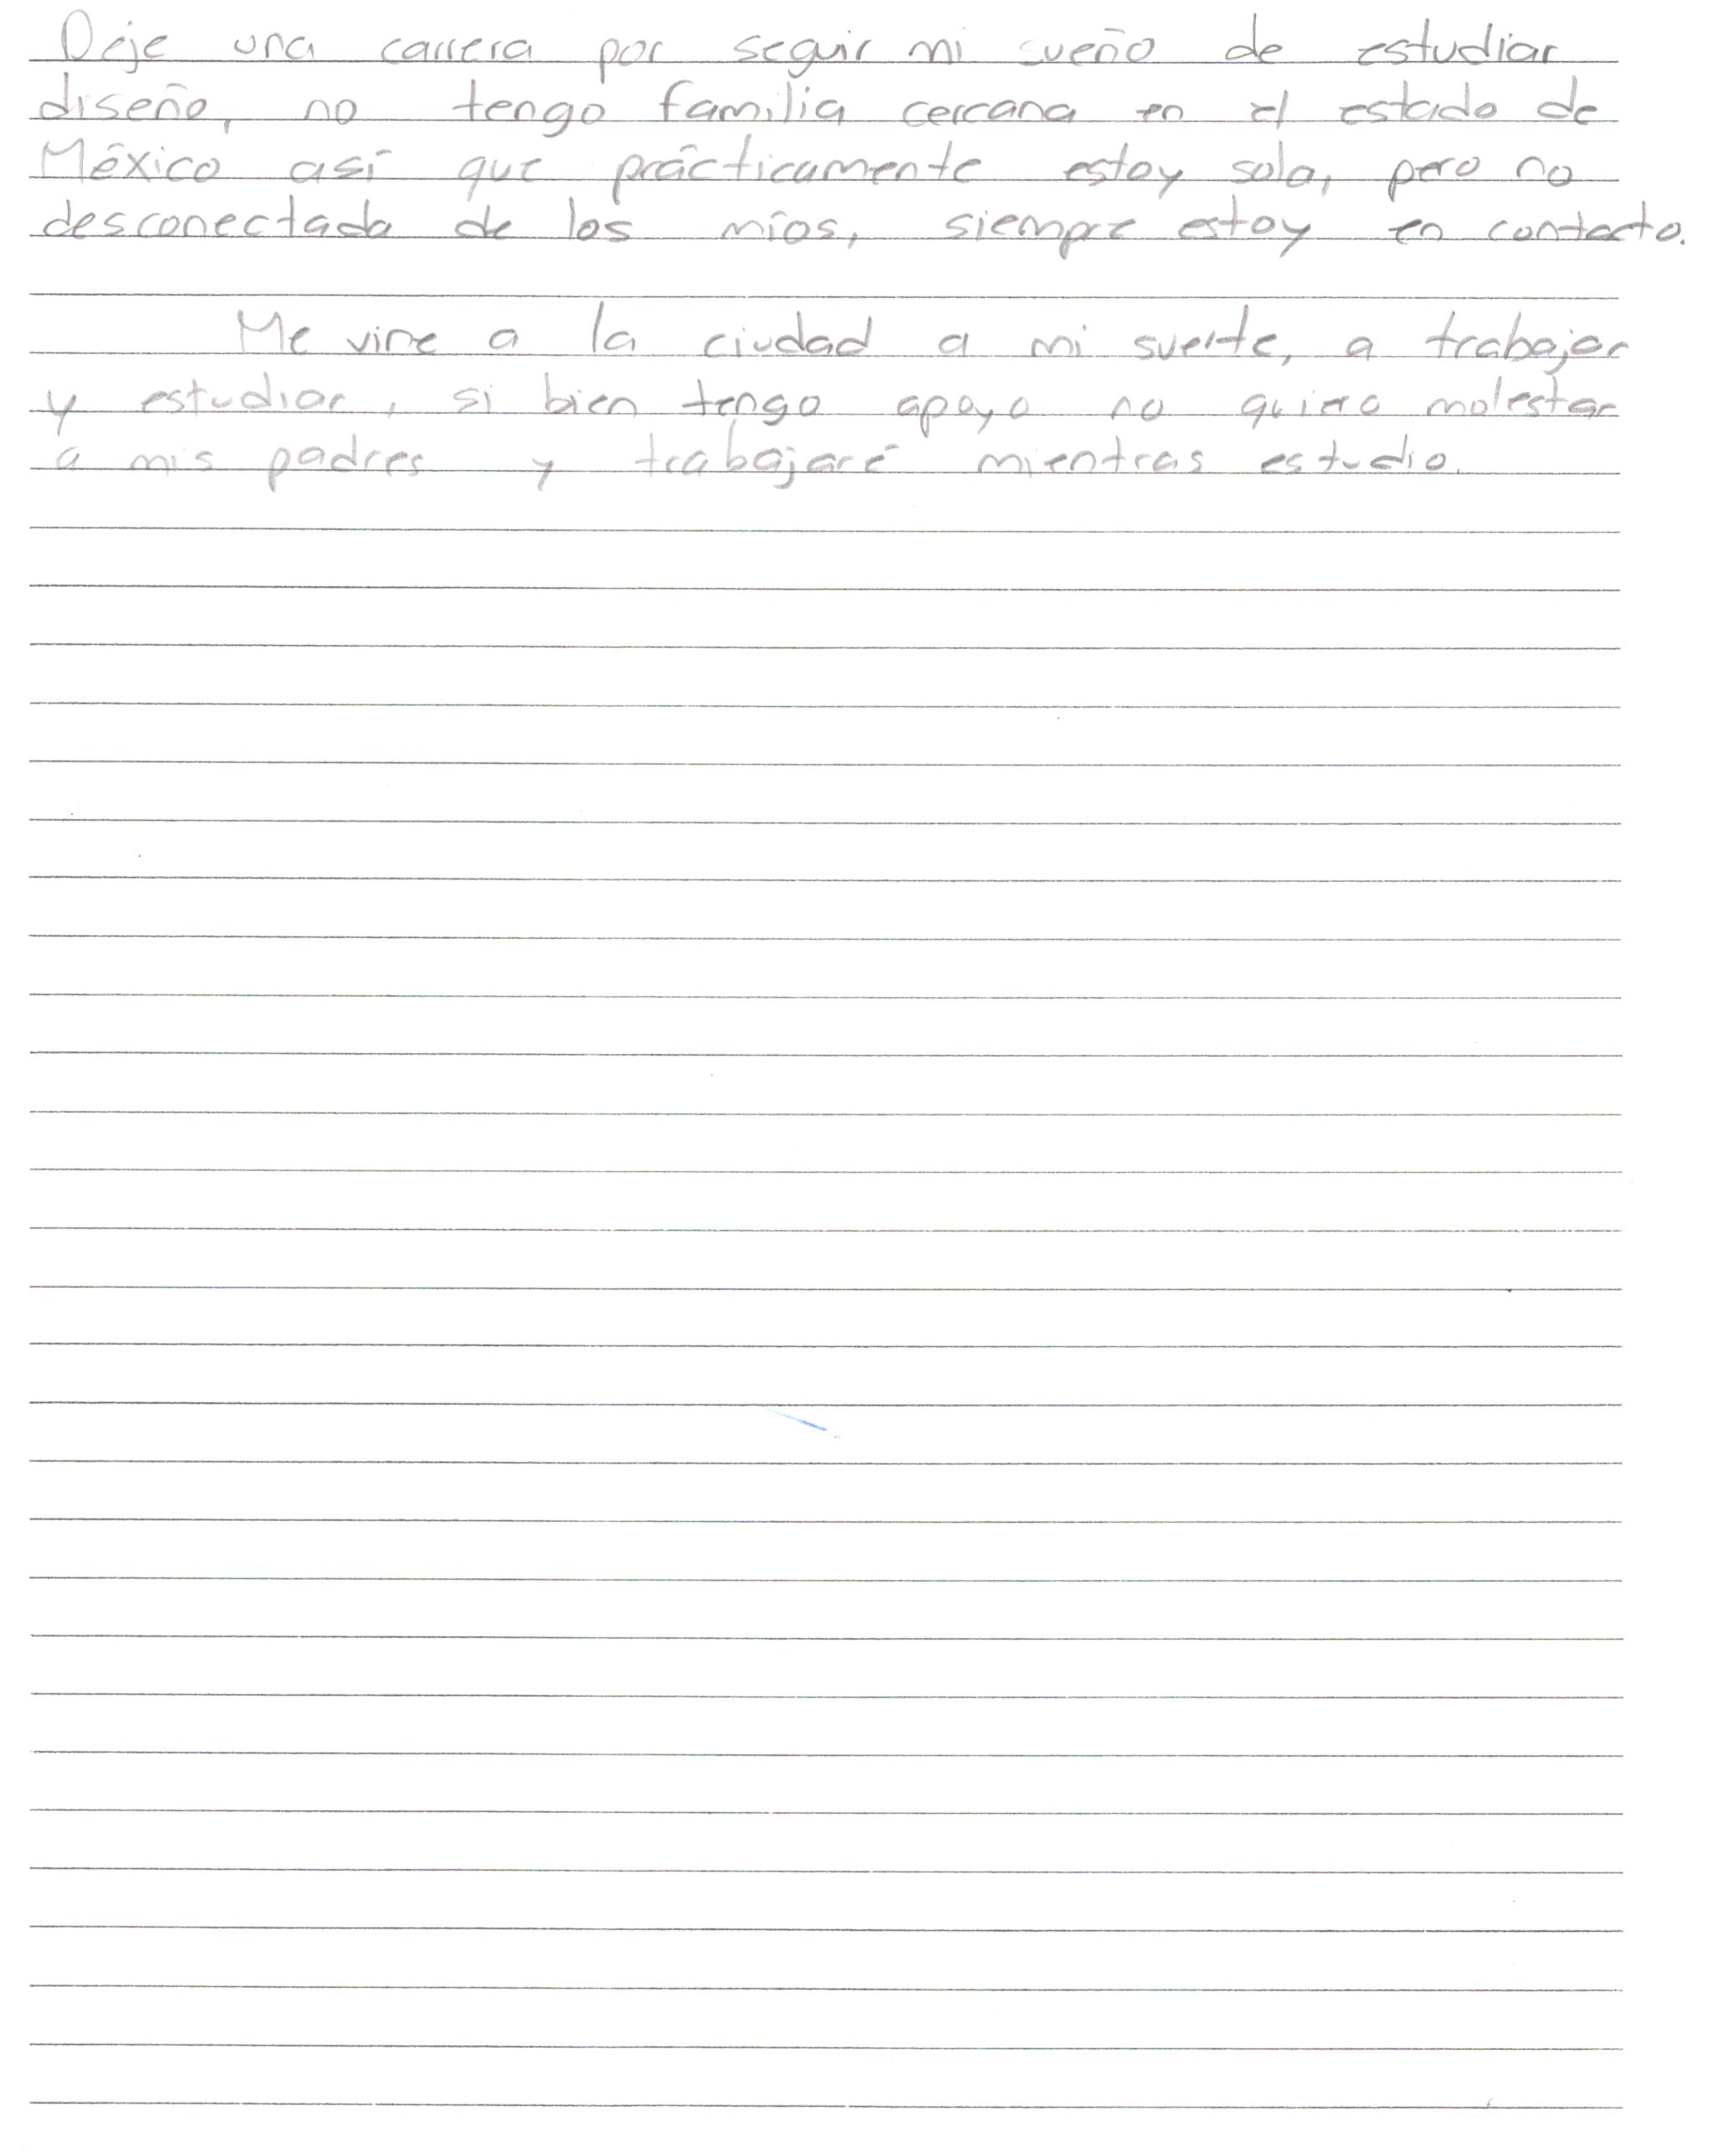 Deje una carrera por seguir mi sueño de estudiar
diseño, no tengo familia cercana en el estado de
México así que prácticamente estoy sola, pero no
desconectada de los míos, siempre estoy en contacto.
Me vine a la ciudad a mi suerte, a trabajar
y estudiar, si bien tengo apoyo no quiero molestar
a mis padres y trabajaré mientras estudio.